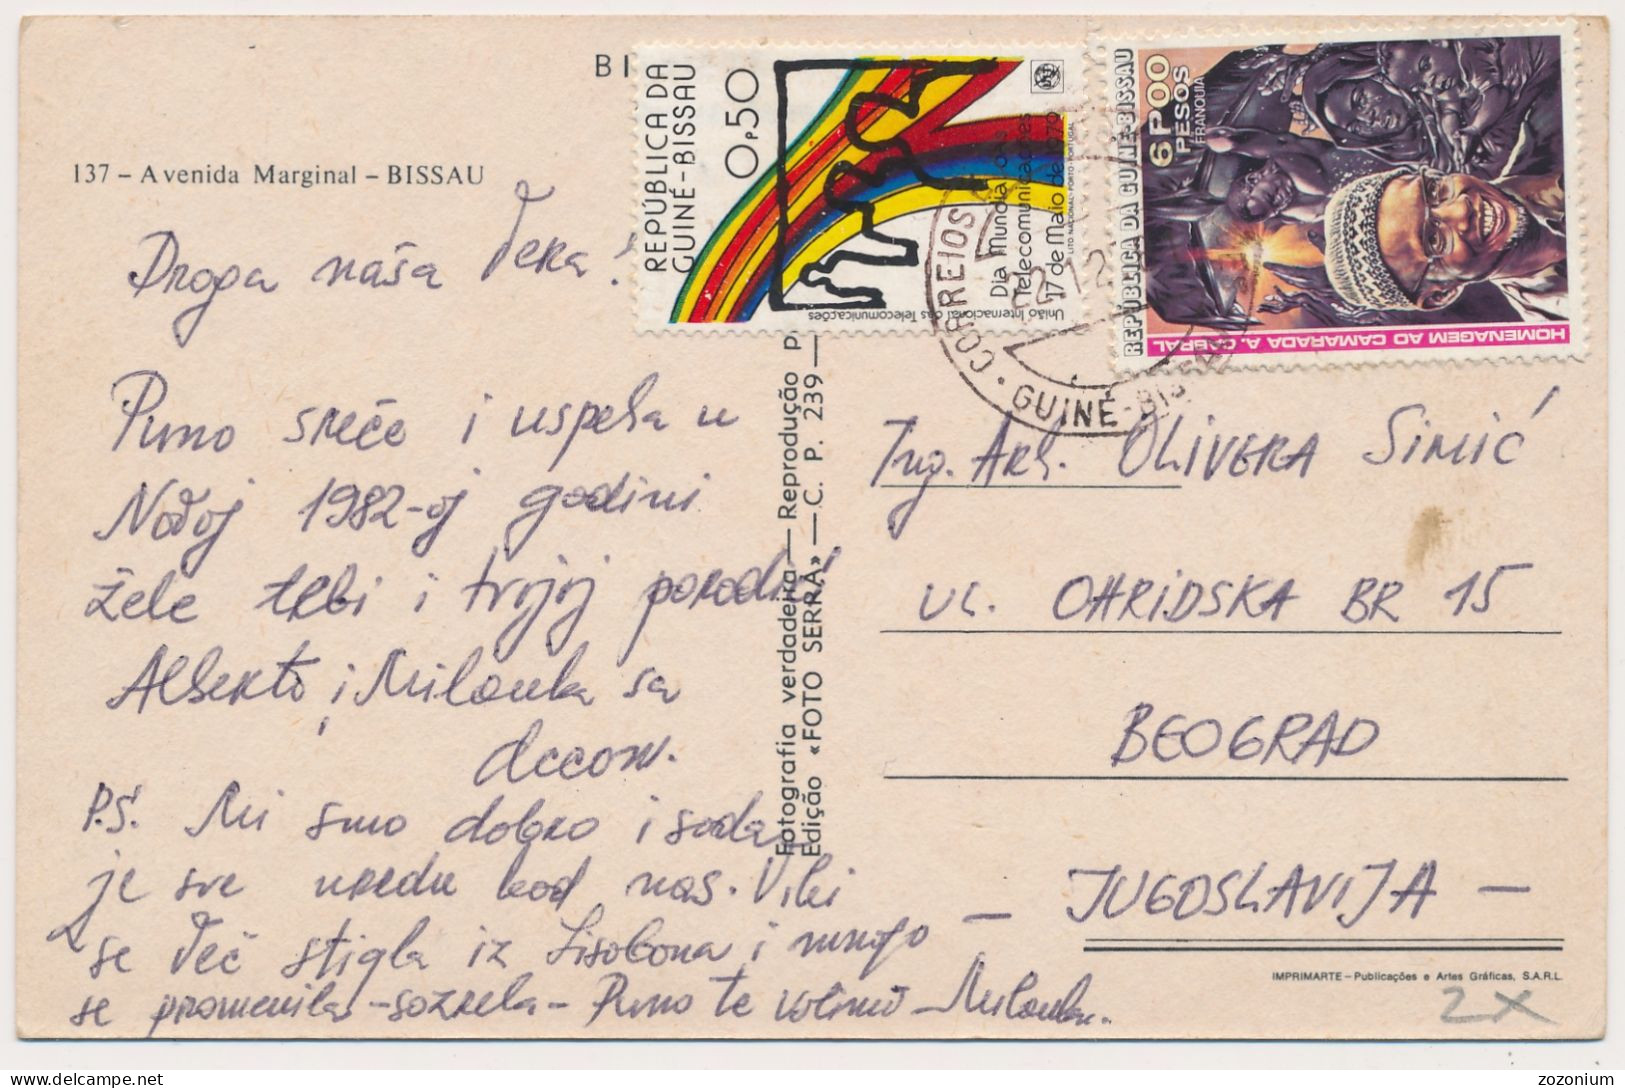 BI
137 – Avenida Marginal – BISSAU
Droga naša Vera!
Puno sreće i uspeha u
Novoj 1982-oj godini
žele tebi i tvojoj porodici
Alberto i Milonka sa
decom.
P.S. Mi smo dobro i sada
je sve uredu kod nas. Viki
se već stigla iz Lisabona i mnogo
se promenila – sozrela – Puno te volimo – Milonka.
Fotografia verdadeira — Reprodução P
Edição «FOTO SERRA» — C. P. 239 —
REPUBLICA DA
GUINÉ-BISSAU
0,P50
Dia Mundial das
Telecomunicações
17 de Maio de 1979
LITO NACIONAL-PORTO-PORTUGAL
União Internacional das Telecomunicações
REPÚBLICA DA GUINÉ-BISSAU
6P00
PESOS
FRANQUIA
HOMENAGEM AO CAMARADA A. CABRAL
CORREIOS
GUINÉ-BISSAU
Ing. Arh. OLIVERA SIMIĆ
UL. OHRIDSKA BR 15
BEOGRAD
— JUGOSLAVIJA —
IMPRIMARTE – Publicações e Artes Gráficas, S.A.R.L.
2X
zozonium